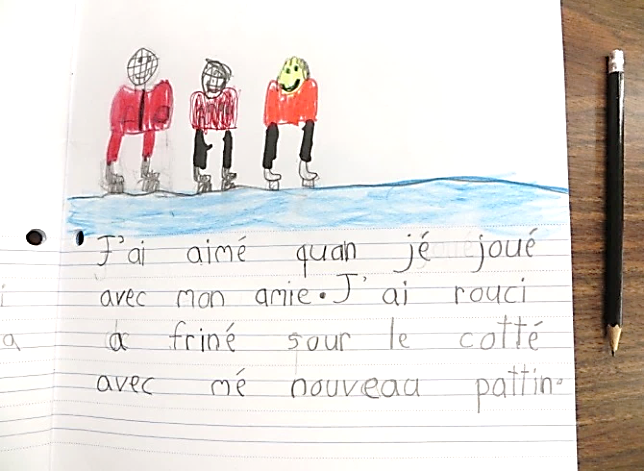 J'ai aimé quan jé joué
avec mon amie. J'ai rouci
a friné sour le cotté
avec mé nouveau pattin.
i
a